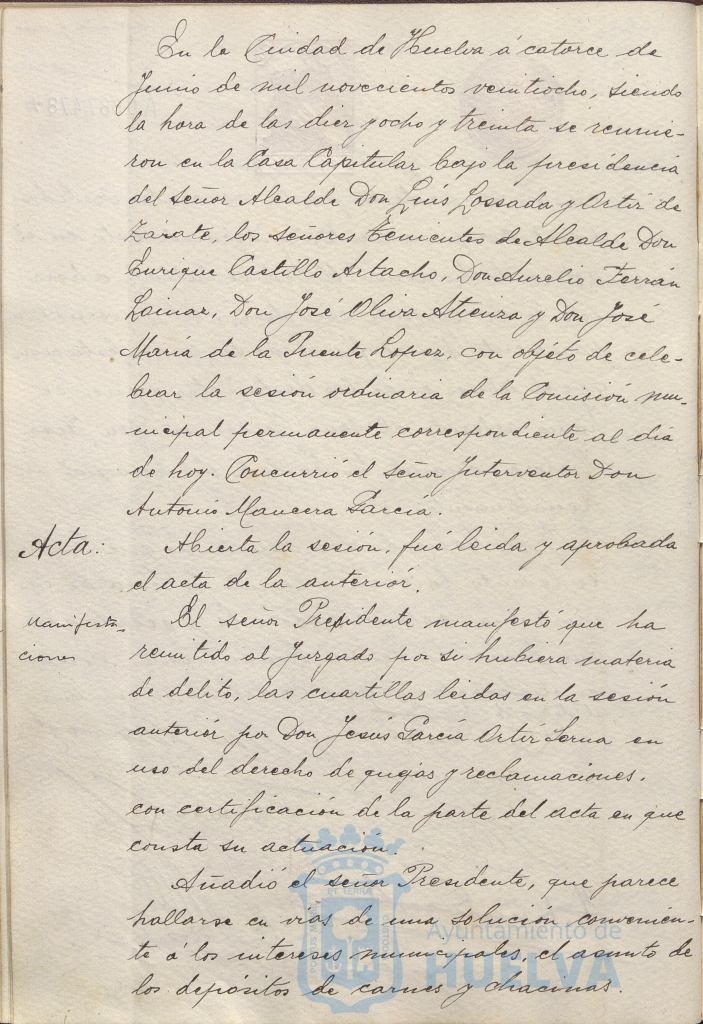 En la Ciudad de Huelva á catorce de
Junio de mil novecientos veintiocho, siendo
la hora de las diez y ocho y treinta se reunie-
ron en la Casa Capitular bajo la presidencia
del señor Alcalde Don Luis Lossada y Ortiz de
Zárate, los señores Tenientes de Alcalde Don
Enrique Castillo Artacho, Don Aurelio Terrán
Lainar, Don José Oliva Atienza y Don José
María de la Puente Lopez, con objeto de cele-
brar la sesión ordinaria de la Comisión mu-
nicipal permanente correspondiente al dia
de hoy. Concurrió el señor Interventor Don
Antonio Mancera García.
Acta: Abierta la sesión, fué leida y aprobada
el acta de la anterior.
Manifesta- El señor Presidente manifestó que ha
ciones remitido al Juzgado por si hubiera materia
de delito, las cuartillas leidas en la sesión
anterior por Don Jesús García Ortiz Serna en
uso del derecho de quejas y reclamaciones,
con certificación de la parte del acta en que
consta su actuación.
Añadió el señor Presidente, que parece
hallarse en vías de una solución convenien-
te á los intereses municipales, el asunto de
los depósitos de carnes y chacinas.
Ayuntamiento de
HUELVA